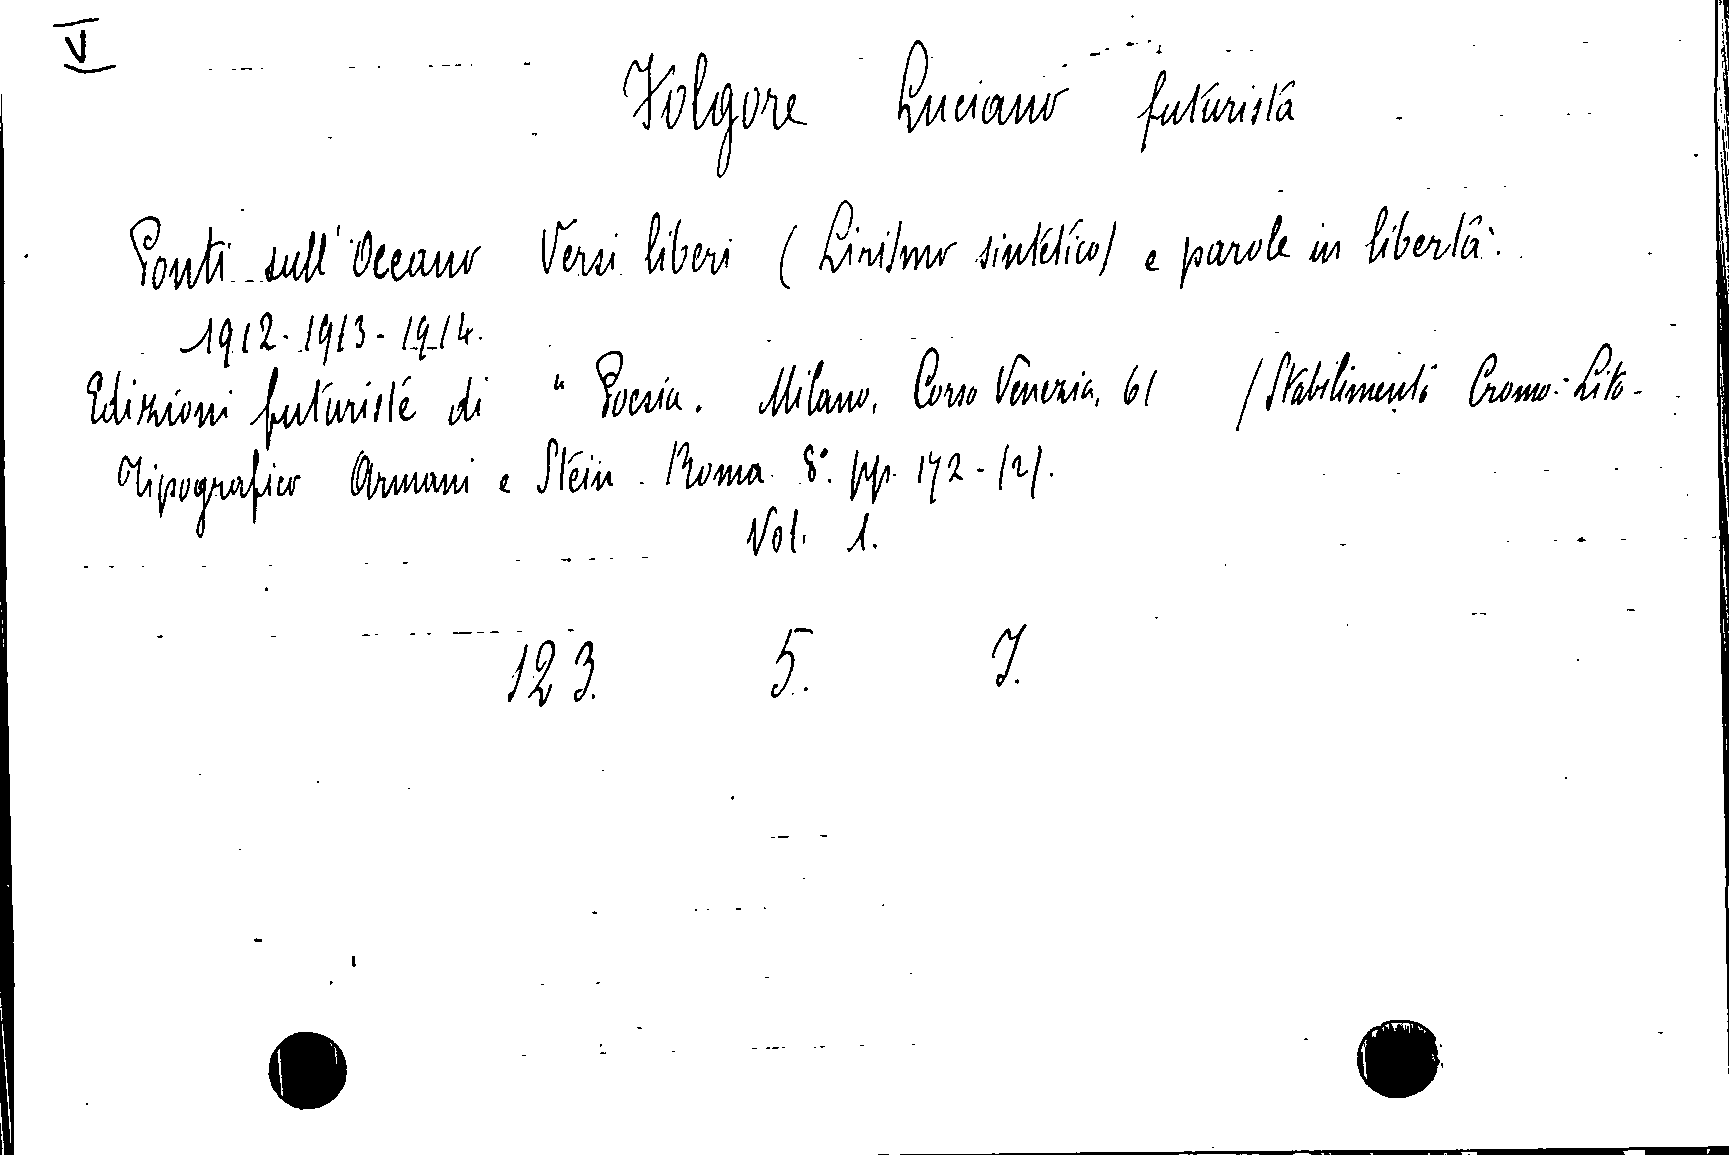 V
Folgore Luciano futurista
Ponti sull'Oceano Versi liberi (Lirismo sintetico) e parole in libertà:
1912-1913-1914.
Edizioni futuriste di "Poesia. Milano, Corso Venezia, 61 (Stabilimento Cromo-Lito-
Tipografico Armani e Stein. Roma 8° pp. 172-(2).
Vol. 1.
123. 5. 7.